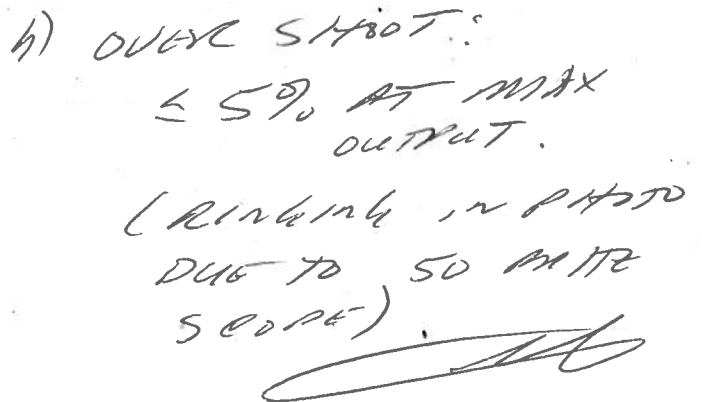 h) OVER SHOOT:
≤ 5% AT MAX
OUTPUT.
(RINGING IN PHOTO
DUE TO 50 MHZ
SCOPE)